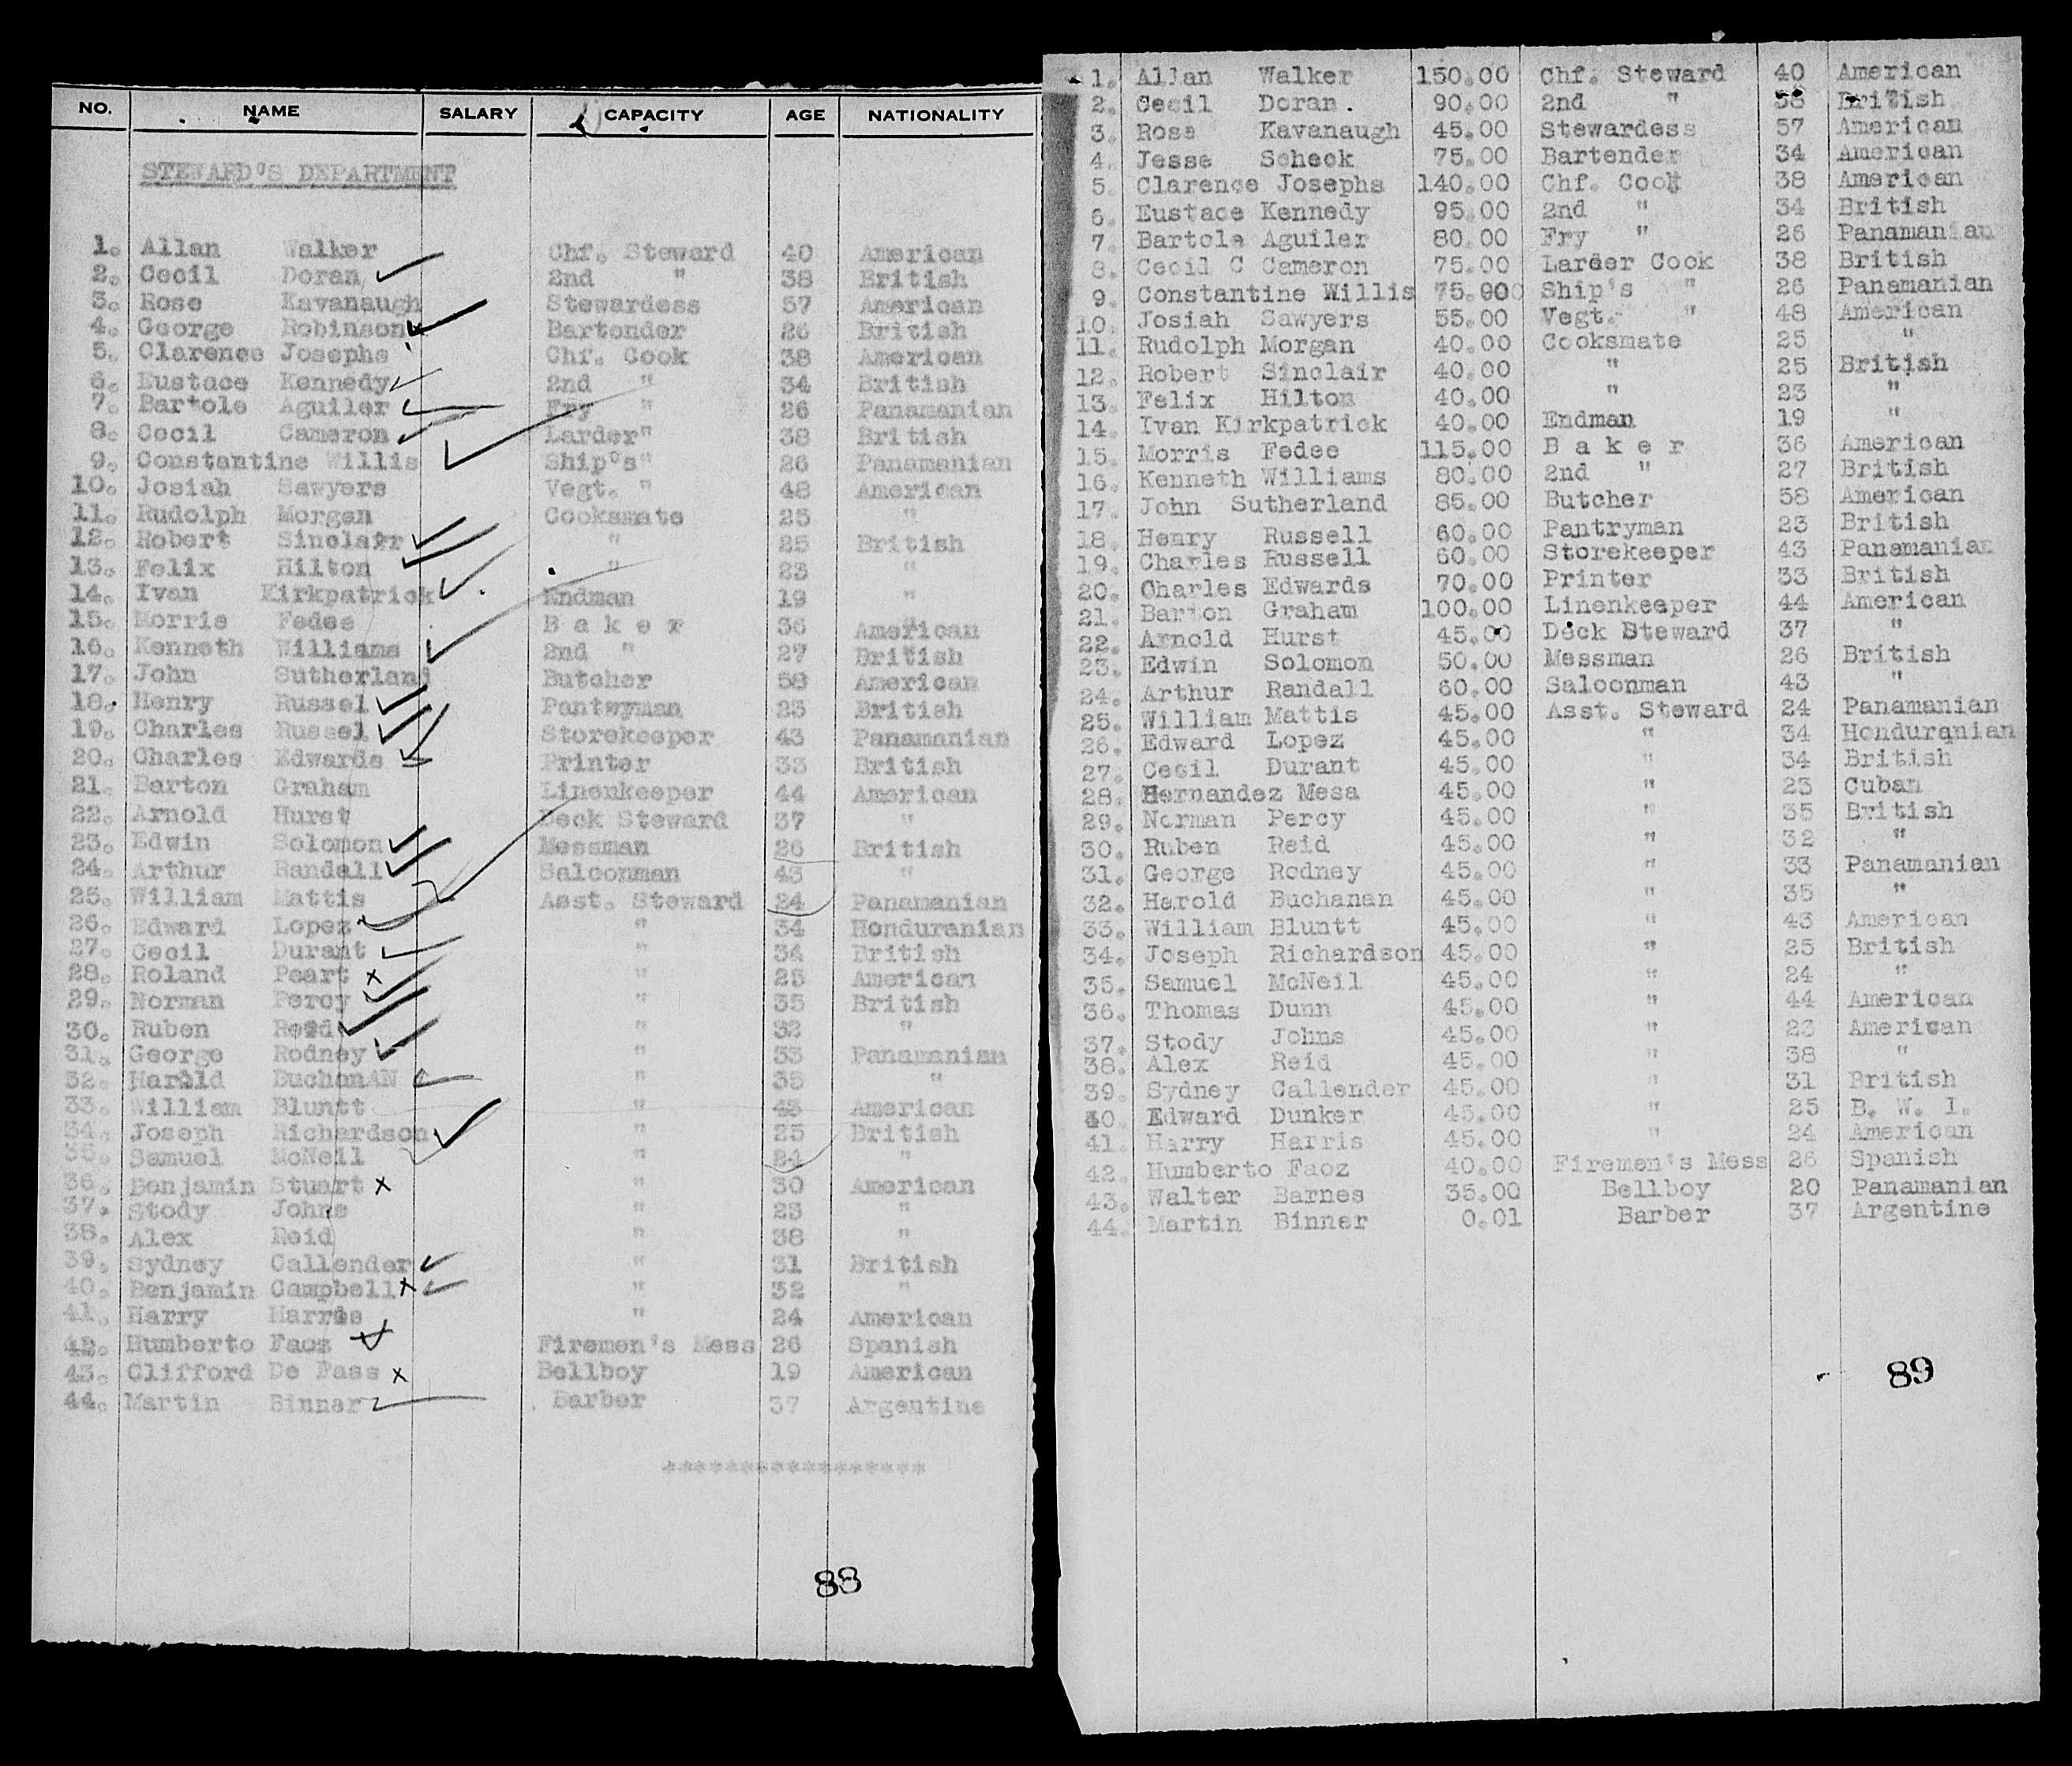 NO. NAME SALARY CAPACITY AGE NATIONALITY
STEWARD'S DEPARTMENT
1. Allan Walker Chf. Steward 40 American
2. Cecil Doran 2nd " 38 British
3. Rose Kavanaugh Stewardess 57 American
4. George Robinson Bartender 26 British
5. Clarence Josephs Chf. Cook 38 American
6. Eustace Kennedy 2nd " 34 British
7. Bartole Aguiler Fry " 26 Panamanian
8. Cecil Cameron Larder" 38 British
9. Constantine Willis Ship's" 26 Panamanian
10. Josiah Sawyers Vegt. " 48 American
11. Rudolph Morgan Cooksmate 25 "
12. Robert Sinclair " 25 British
13. Felix Hilton " 23 "
14. Ivan Kirkpatrick Endman 19 "
15. Morris Fedee B a k e r 36 American
16. Kenneth Williams 2nd " 27 British
17. John Sutherland Butcher 58 American
18. Henry Russel Pantwyman 23 British
19. Charles Russel Storekeeper 43 Panamanian
20. Charles Edwards Printer 33 British
21. Barton Graham Linenkeeper 44 American
22. Arnold Hurst Deck Steward 37 "
23. Edwin Solomon Messman 26 British
24. Arthur Randall Saloonman 43 "
25. William Mattis Asst. Steward 24 Panamanian
26. Edward Lopez " 34 Honduranian
27. Cecil Durant " 34 British
28. Roland Peart x " 25 American
29. Norman Percy " 35 British
30. Ruben Reid " 32 "
31. George Rodney " 33 Panamanian
32. Harold BuchanAN " 35 "
33. William Bluntt " 43 American
34. Joseph Richardson " 25 British
35. Samuel McNeil " 24 "
36. Benjamin Stuart x " 30 American
37. Stody Johns " 23 "
38. Alex Reid " 38 "
39. Sydney Callender " 31 British
40. Benjamin Campbell x " 32 "
41. Harry Harris " 24 American
42. Humberto Faoz Firemen's Mess 26 Spanish
43. Clifford De Pass x Bellboy 19 American
44. Martin Binner Barber 37 Argentine
*****************
88
1. Allan Walker 150.00 Chf. Steward 40 American
2. Cecil Doran. 90.00 2nd " 38 British
3. Rose Kavanaugh 45.00 Stewardess 57 American
4. Jesse Scheck 75.00 Bartender 34 American
5. Clarence Josephs 140.00 Chf. Cook 38 American
6. Eustace Kennedy 95.00 2nd " 34 British
7. Bartole Aguiler 80.00 Fry " 26 Panamanian
8. Cecil C Cameron 75.00 Larder Cook 38 British
9. Constantine Willis 75.000 Ship's " 26 Panamanian
10. Josiah Sawyers 55.00 Vegt. " 48 American
11. Rudolph Morgan 40.00 Cooksmate 25 "
12. Robert Sinclair 40.00 " 25 British
13. Felix Hilton 40.00 " 23 "
14. Ivan Kirkpatrick 40.00 Endman 19 "
15. Morris Fedee 115.00 B a k e r 36 American
16. Kenneth Williams 80.00 2nd " 27 British
17. John Sutherland 85.00 Butcher 58 American
18. Henry Russell 60.00 Pantryman 23 British
19. Charles Russell 60.00 Storekeeper 43 Panamanian
20. Charles Edwards 70.00 Printer 33 British
21. Barton Graham 100.00 Linenkeeper 44 American
22. Arnold Hurst 45.00 Deck Steward 37 "
23. Edwin Solomon 50.00 Messman 26 British
24. Arthur Randall 60.00 Saloonman 43 "
25. William Mattis 45.00 Asst. Steward 24 Panamanian
26. Edward Lopez 45.00 " 34 Honduranian
27. Cecil Durant 45.00 " 34 British
28. Hernandez Mesa 45.00 " 23 Cuban
29. Norman Percy 45.00 " 35 British
30. Ruben Reid 45.00 " 32 "
31. George Rodney 45.00 " 33 Panamanian
32. Harold Buchanan 45.00 " 35 "
33. William Bluntt 45.00 " 43 American
34. Joseph Richardson 45.00 " 25 British
35. Samuel McNeil 45.00 " 24 "
36. Thomas Dunn 45.00 " 44 American
37. Stody Johns 45.00 " 23 American
38. Alex Reid 45.00 " 38 "
39. Sydney Callender 45.00 " 31 British
40. Edward Dunker 45.00 " 25 B. W. I.
41. Harry Harris 45.00 " 24 American
42. Humberto Faoz 40.00 Firemen's Mess 26 Spanish
43. Walter Barnes 35.00 Bellboy 20 Panamanian
44. Martin Binner 0.01 Barber 37 Argentine
89